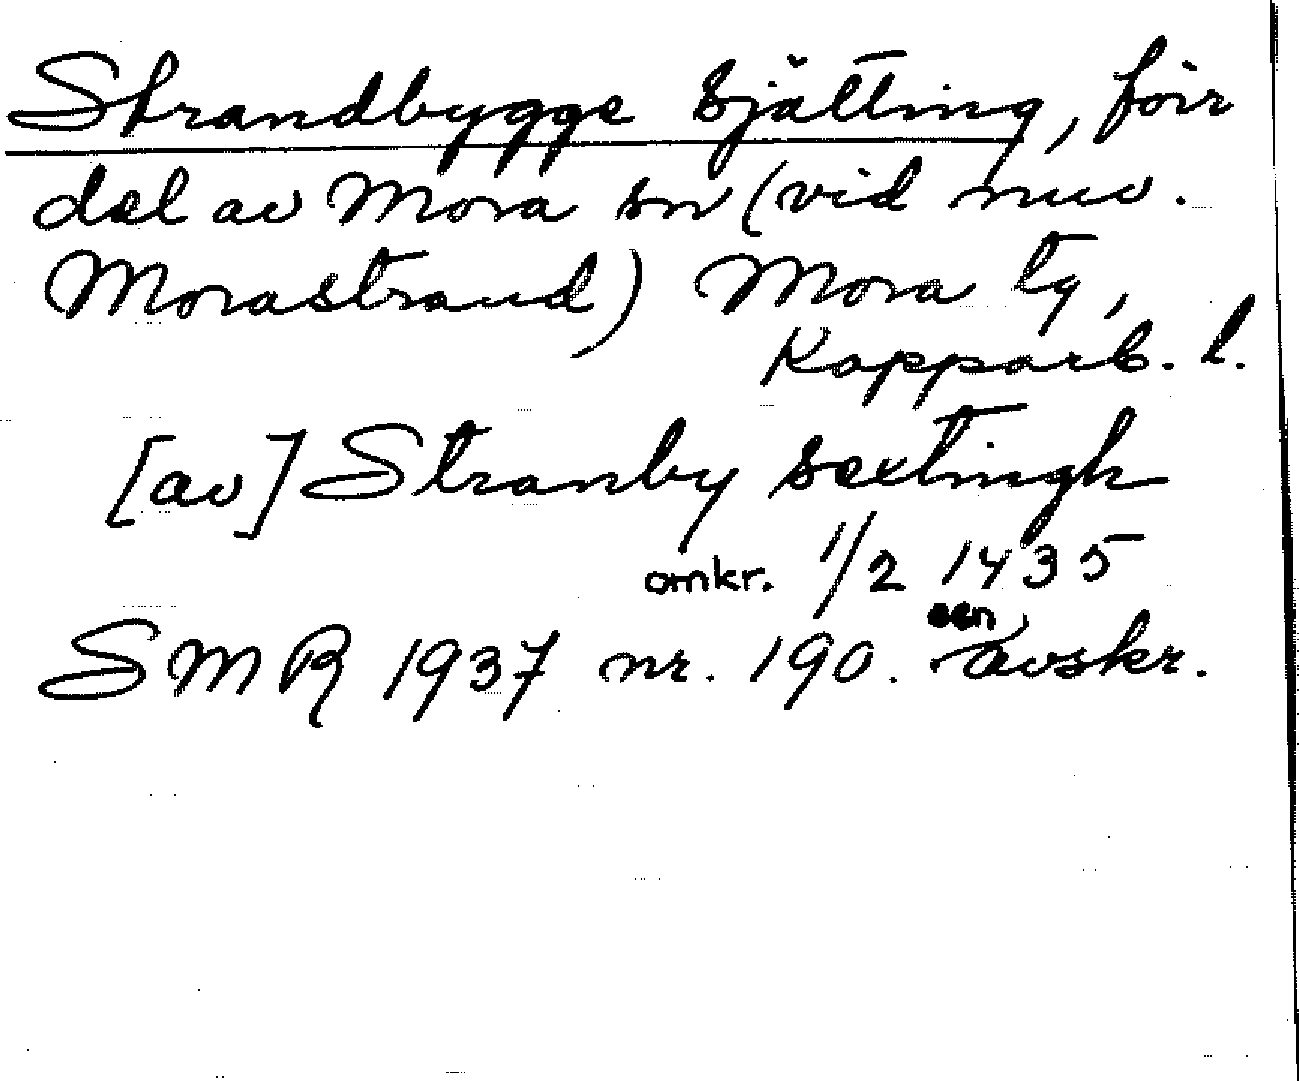 Strandbygge sjätting, förr
del av Mora sn (vid nuv.
Morastrand) Mora tg,
Kopparb. l.
[av] Stranby sextingh
omkr. 1/2 1435
SMR 1937 nr. 190. sen avskr.